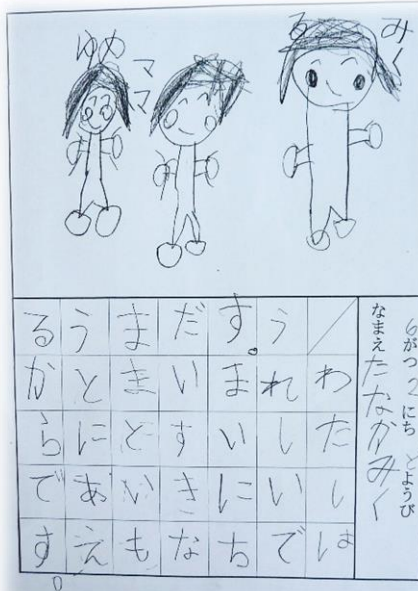 ゆめ
ママ
みく
6がつ2にちどようび
なまえたなかみく
わたしは
うれしいで
す。まいにち
だいすきな
ままどいも
うとにあえ
るからです。